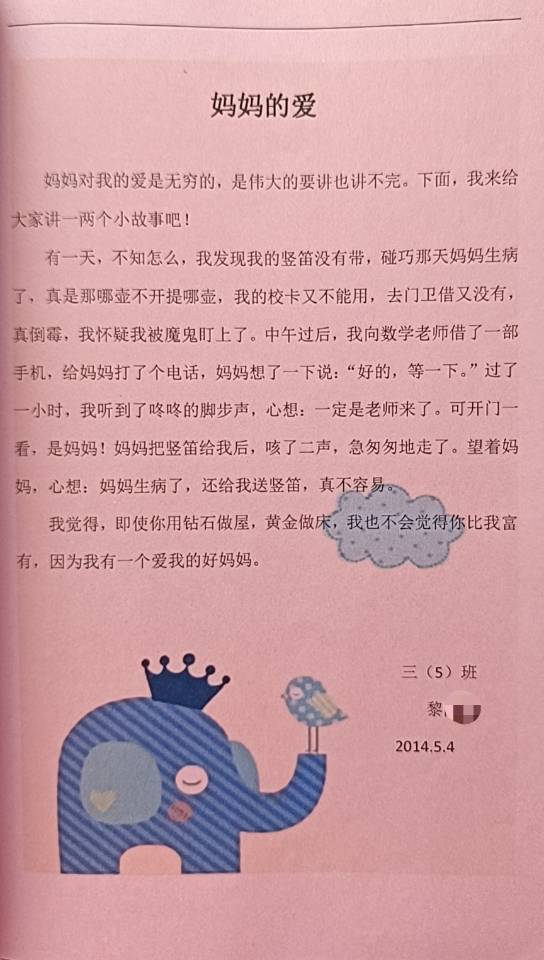 妈妈的爱
妈妈对我的爱是无穷的，是伟大的要讲也讲不完。下面，我来给
大家讲一两个小故事吧！
有一天，不知怎么，我发现我的竖笛没有带，碰巧那天妈妈生病
了，真是那哪壶不开提哪壶，我的校卡又不能用，去门卫借又没有，
真倒霉，我怀疑我被魔鬼盯上了。中午过后，我向数学老师借了一部
手机，给妈妈打了个电话，妈妈想了一下说：“好的，等一下。”过了
一小时，我听到了咚咚的脚步声，心想：一定是老师来了。可开门一
看，是妈妈！妈妈把竖笛给我后，咳了二声，急匆匆地走了。望着妈
妈，心想：妈妈生病了，还给我送竖笛，真不容易。
我觉得，即使你用钻石做屋，黄金做床，我也不会觉得你比我富
有，因为我有一个爱我的好妈妈。
三（5）班
黎
2014.5.4